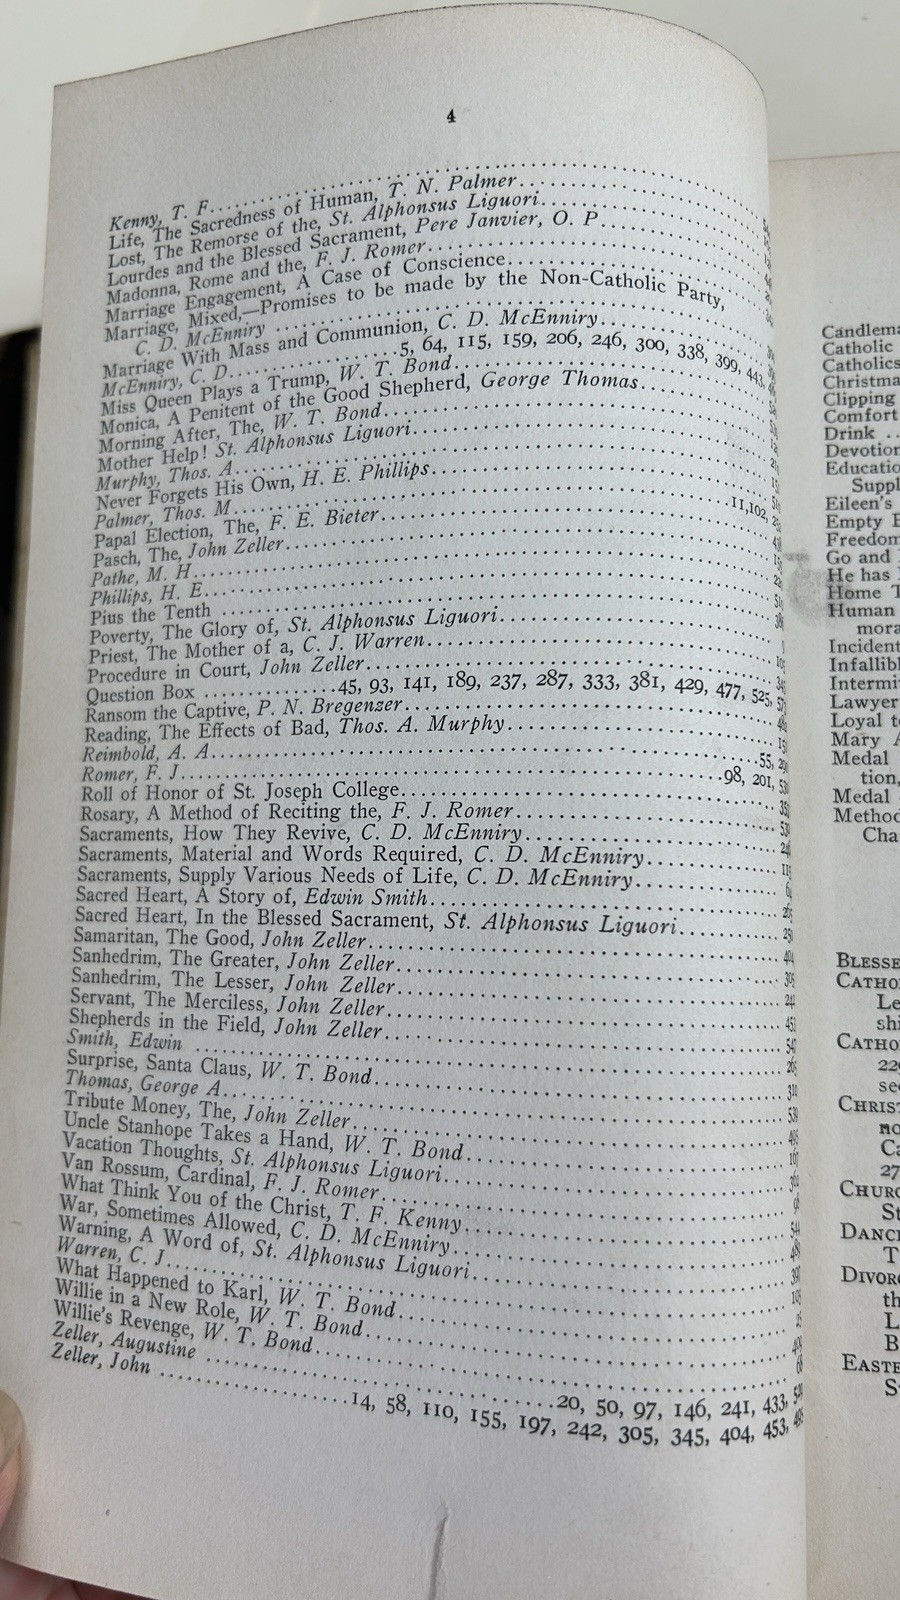 4
Kenny, T. F.
Life, The Sacredness of Human, T. N. Palmer
Lost, The Remorse of the, St. Alphonsus Liguori
Lourdes and the Blessed Sacrament, Pere Janvier, O. P.
Madonna, Rome and the, F. J. Romer
Marriage Engagement, A Case of Conscience
Marriage, Mixed,—Promises to be made by the Non-Catholic Party,
C. D. McEnniry
Marriage With Mass and Communion, C. D. McEnniry
McEnniry, C. D. 5, 64, 115, 159, 206, 246, 300, 338, 399, 443,
Miss Queen Plays a Trump, W. T. Bond
Monica, A Penitent of the Good Shepherd, George Thomas
Morning After, The, W. T. Bond
Mother Help! St. Alphonsus Liguori
Murphy, Thos. A.
Never Forgets His Own, H. E. Phillips
Palmer, Thos. M. 11,102,
Papal Election, The, F. E. Bieter
Pasch, The, John Zeller
Pathe, M. H.
Phillips, H. E.
Pius the Tenth
Poverty, The Glory of, St. Alphonsus Liguori
Priest, The Mother of a, C. J. Warren
Procedure in Court, John Zeller
Question Box 45, 93, 141, 189, 237, 287, 333, 381, 429, 477, 525,
Ransom the Captive, P. N. Bregenzer
Reading, The Effects of Bad, Thos. A. Murphy
Reimbold, A. A. 55,
Romer, F. J. 98, 201,
Roll of Honor of St. Joseph College
Rosary, A Method of Reciting the, F. J. Romer
Sacraments, How They Revive, C. D. McEnniry
Sacraments, Material and Words Required, C. D. McEnniry
Sacraments, Supply Various Needs of Life, C. D. McEnniry
Sacred Heart, A Story of, Edwin Smith
Sacred Heart, In the Blessed Sacrament, St. Alphonsus Liguori
Samaritan, The Good, John Zeller
Sanhedrim, The Greater, John Zeller
Sanhedrim, The Lesser, John Zeller
Servant, The Merciless, John Zeller
Shepherds in the Field, John Zeller
Smith, Edwin
Surprise, Santa Claus, W. T. Bond
Thomas, George A.
Tribute Money, The, John Zeller
Uncle Stanhope Takes a Hand, W. T. Bond
Vacation Thoughts, St. Alphonsus Liguori
Van Rossum, Cardinal, F. J. Romer
What Think You of the Christ, T. F. Kenny
War, Sometimes Allowed, C. D. McEnniry
Warning, A Word of, St. Alphonsus Liguori
Warren, C. J.
What Happened to Karl, W. T. Bond
Willie in a New Role, W. T. Bond
Willie's Revenge, W. T. Bond
Zeller, Augustine 20, 50, 97, 146, 241, 433,
Zeller, John 14, 58, 110, 155, 197, 242, 305, 345, 404, 453,
Candlema
Catholic
Catholics
Christma
Clipping
Comfort
Drink
Devotion
Educatio
Suppl
Eileen's
Empty
Freedom
Go and
He has
Home T
Human
mora
Incident
Infallibl
Intermi
Lawyer
Loyal t
Mary A
Medal
tion,
Medal
Method
Cha
BLESSE
CATHO
Le
shi
CATHO
22
se
CHRIS
no
Ca
27
CHURC
St
DANC
T
DIVOR
th
L
B
EASTE
S